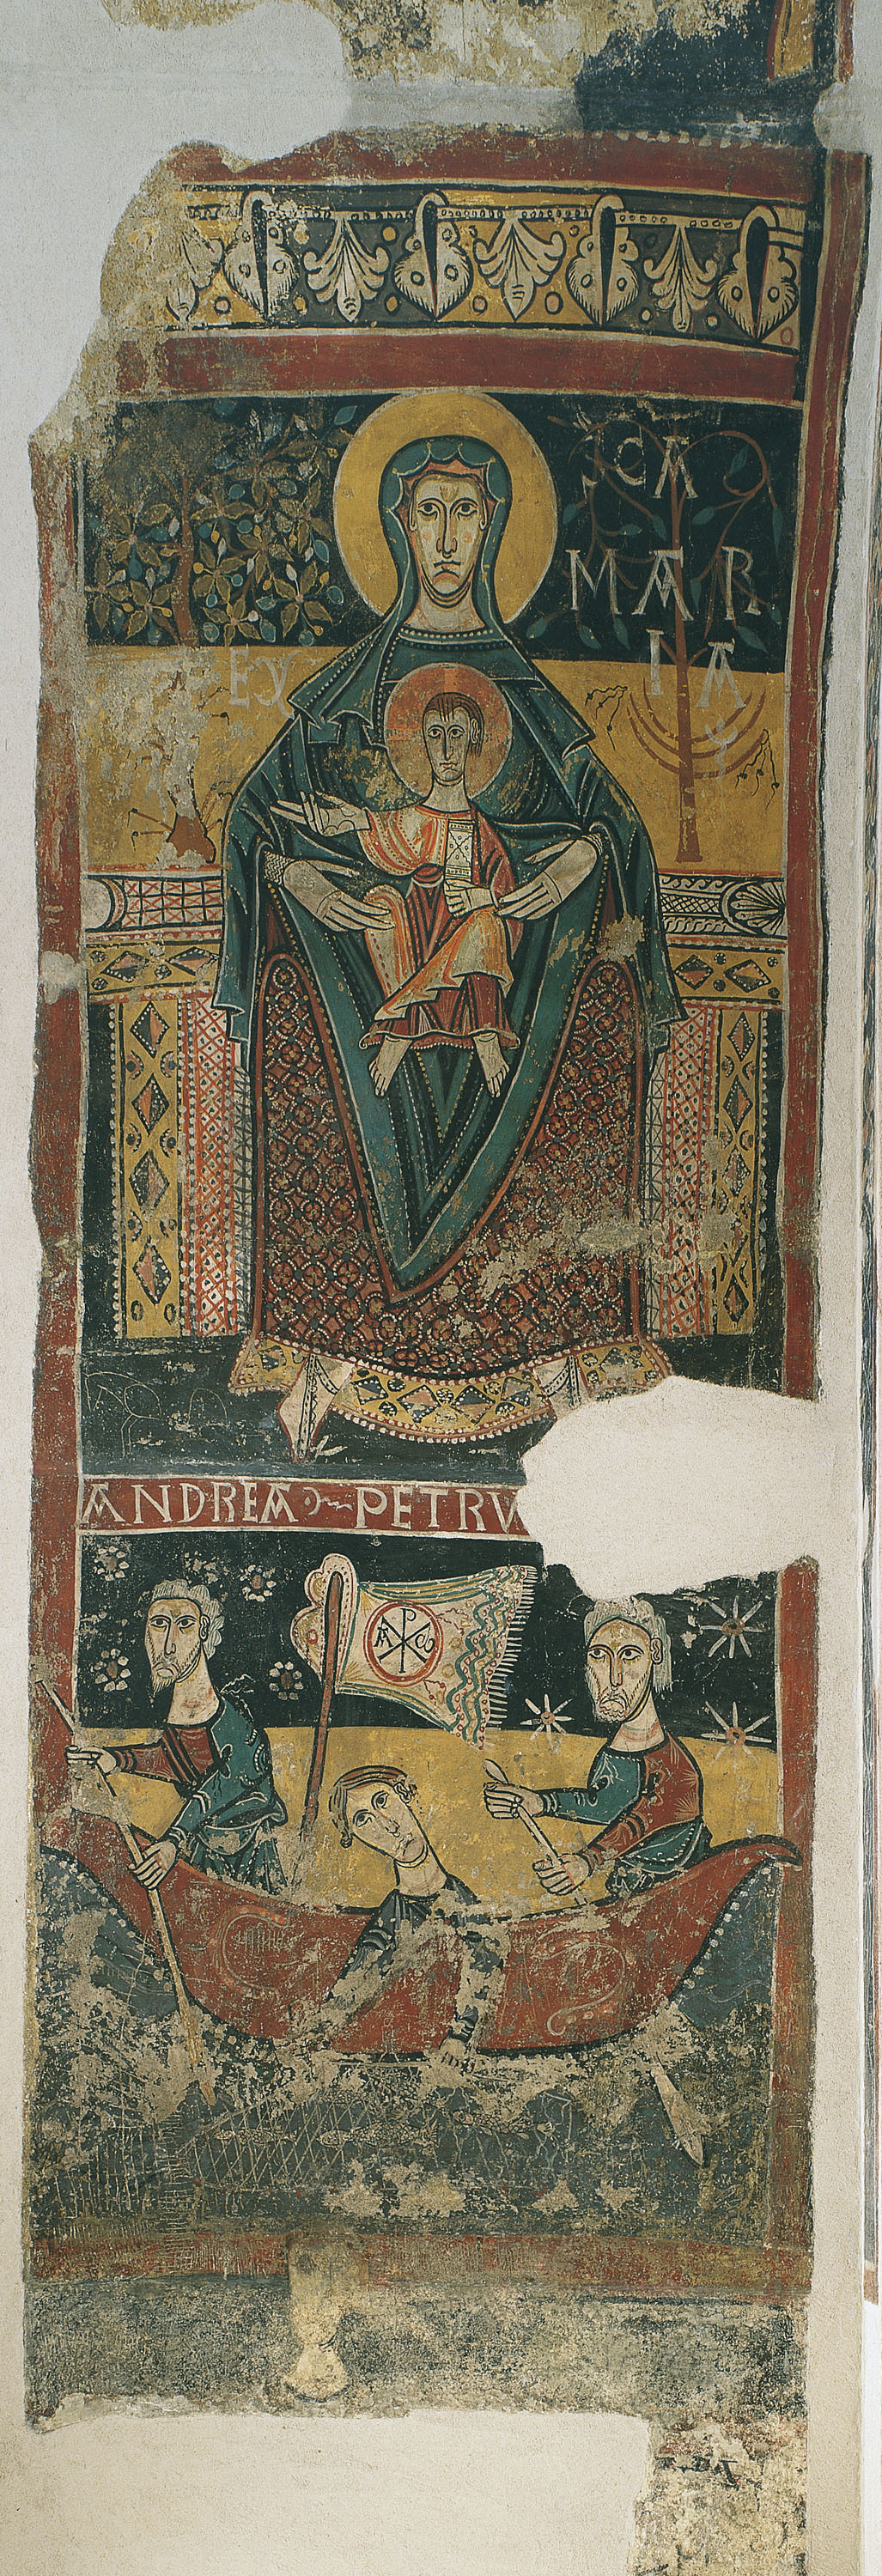 SCA
MAR
IA
EY
ANDREA PETRV
A P ω